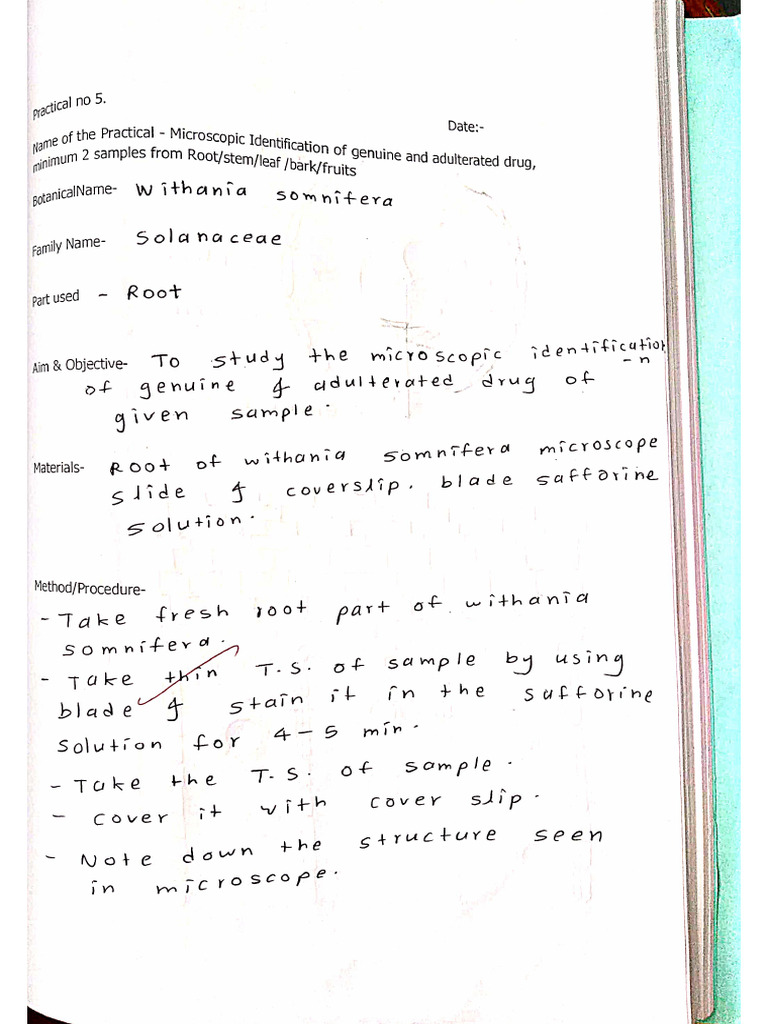 Practical no 5.
Date:-
Name of the Practical - Microscopic Identification of genuine and adulterated drug,
minimum 2 samples from Root/stem/leaf /bark/fruits
BotanicalName- Withania somnifera
Family Name- Solanaceae
Part used - Root
Aim & Objective- To study the microscopic identification
-n
of genuine & adulterated drug of
given sample.
Materials- Root of withania somnifera microscope
slide & coverslip. blade safforine
solution.
Method/Procedure-
- Take fresh root part of withania
somnifera.
- Take thin T.S. of sample by using
blade & stain it in the safforine
solution for 4-5 min.
- Take the T.S. of sample.
- cover it with cover slip.
- Note down the structure seen
in microscope.